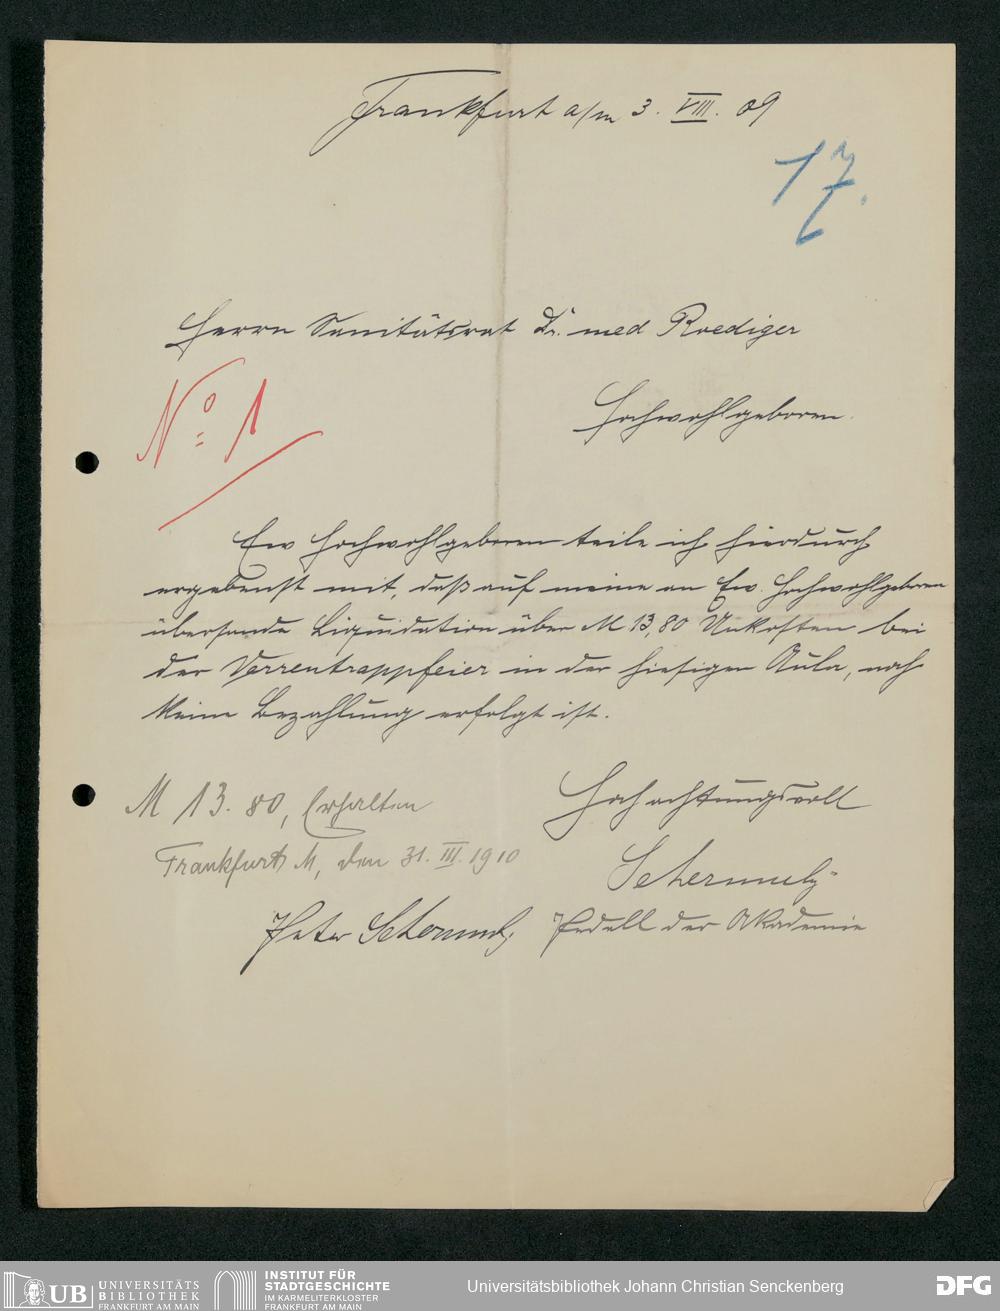 Frankfurt a/m 3. VIII. 09
17.
Herrn Sanitätsrat Dr. med Roediger
No 1
Hochwohlgeboren.
Ew Hochwohlgeboren teile ich hierdurch
ergebenst mit, daß auf meine an Ew. Hochwohlgeboren
übersande Liquidation über M 13,80 Unkosten bei
der Varrentrappfeier in der hiesigen Aula, noch
keine Bezahlung erfolgt ist.
Hochachtungsvoll
M 13.80, Erhalten
Frankfurt M, den 31. III. 1910
Pedell der Akademie
Peter
UB UNIVERSITÄTS
BIBLIOTHEK
FRANKFURT AM MAIN
INSTITUT FÜR
STADTGESCHICHTE
IM KARMELITERKLOSTER
FRANKFURT AM MAIN
Universitätsbibliothek Johann Christian Senckenberg
DFG